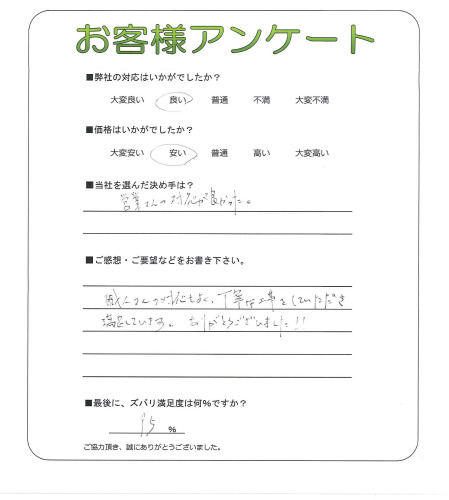 お客様アンケート
■弊社の対応はいかがでしたか?
大変良い 良い 普通 不満 大変不満
■価格はいかがでしたか?
大変安い 安い 普通 高い 大変高い
■当社を選んだ決め手は?
営業さんの対応が良かった。
■ご感想・ご要望などをお書き下さい。
職人さんの対応もよく、丁寧な工事をしていただき
満足しています。ありがとうございました!!
■最後に、ズバリ満足度は何%ですか?
95 %
ご協力頂き、誠にありがとうございました。